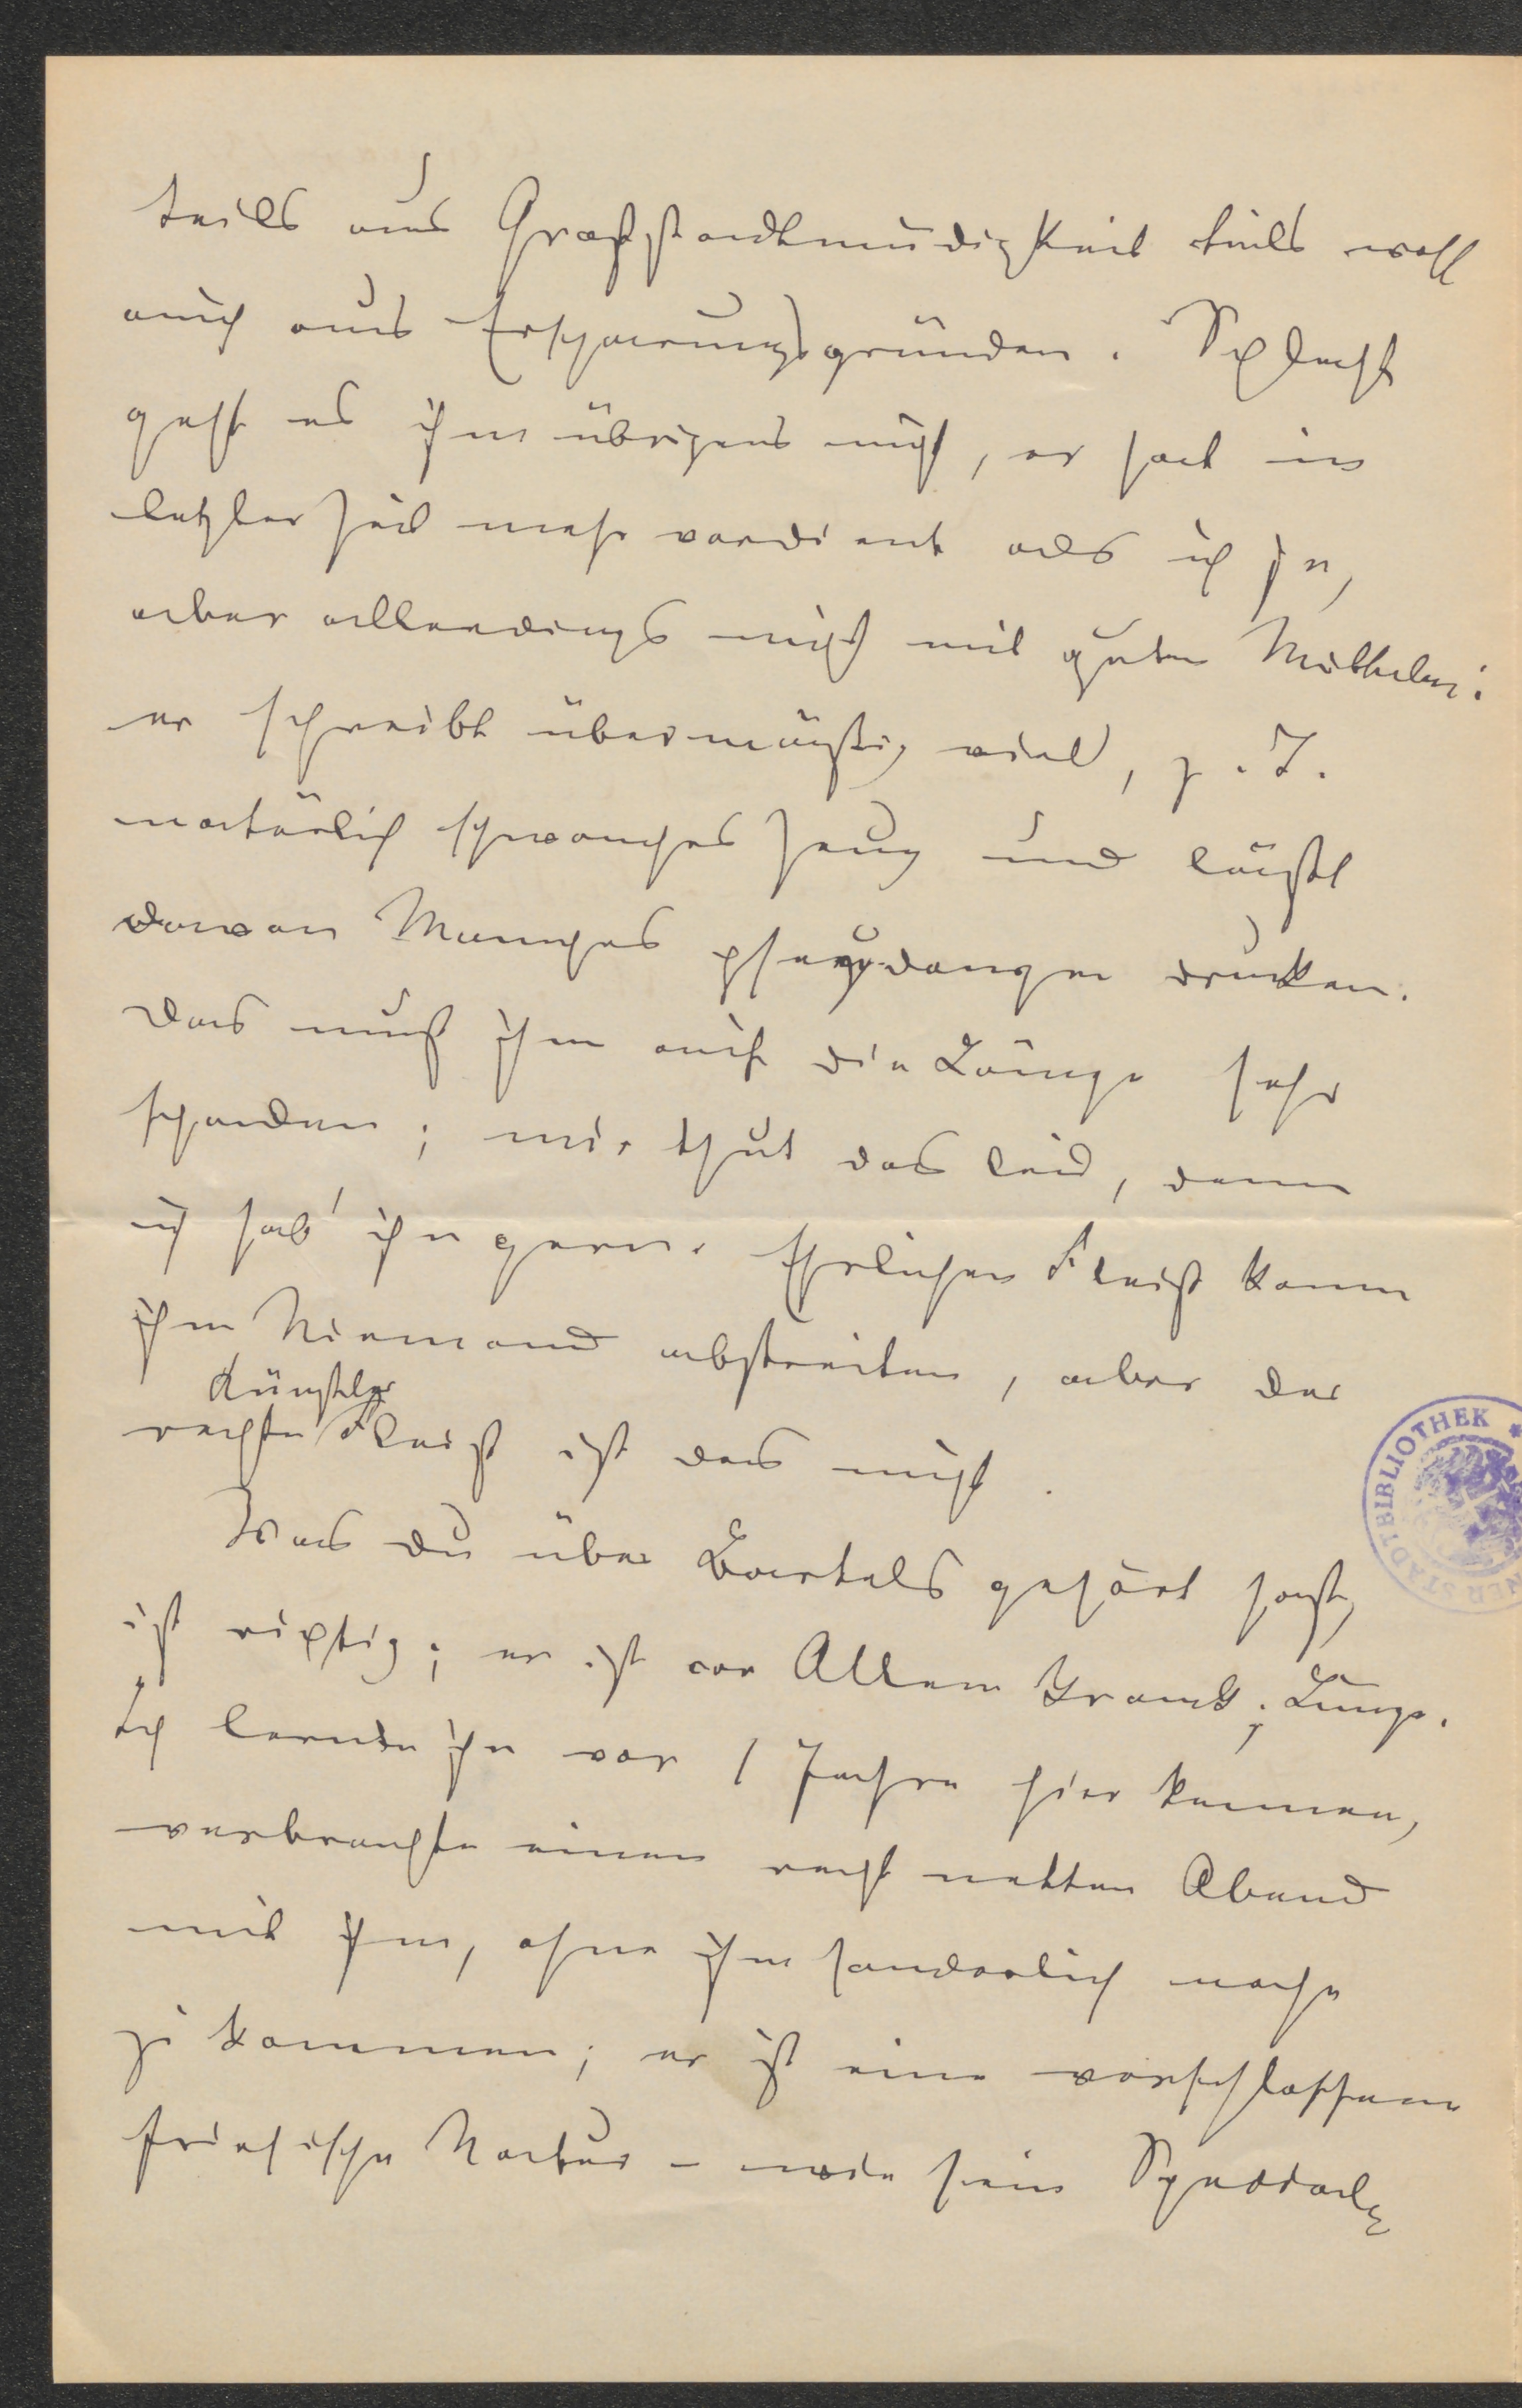 teils aus Großstadtmüdigkeit teils wohl
auch aus Ersparungsgründen. Schlecht
geht es ihm übrigens nicht, er hat in
letzter Zeit mehr verdient als ich je,
aber allerdings nicht mit guten Mitteln:
er schreibt übermäßig viel, z. T.
natürlich schwaches Zeug und läßt
davon Manches pseudonym drucken.
Das muß ihm auf die Länge sehr
schaden; mir thut das leid, denn
ich hab' ihn gern. Ehrlichen Fleiß kann
ihm Niemand abstreiten, aber der
Künstler
rechte Fleiß ist das nicht.
Was du über Bartels gehört hast,
ist richtig; er ist vor Allem krank; Lunge.
Ich lernte ihn vor 1 Jahre hier kennen,
verbrachte einen recht netten Abend
mit ihm, ohne ihm sonderlich nahe
zu kommen; er ist eine verschlossene
friesische Natur – wie sein
BIBLIOTHEK
NER STADTBIBLIOTHEK